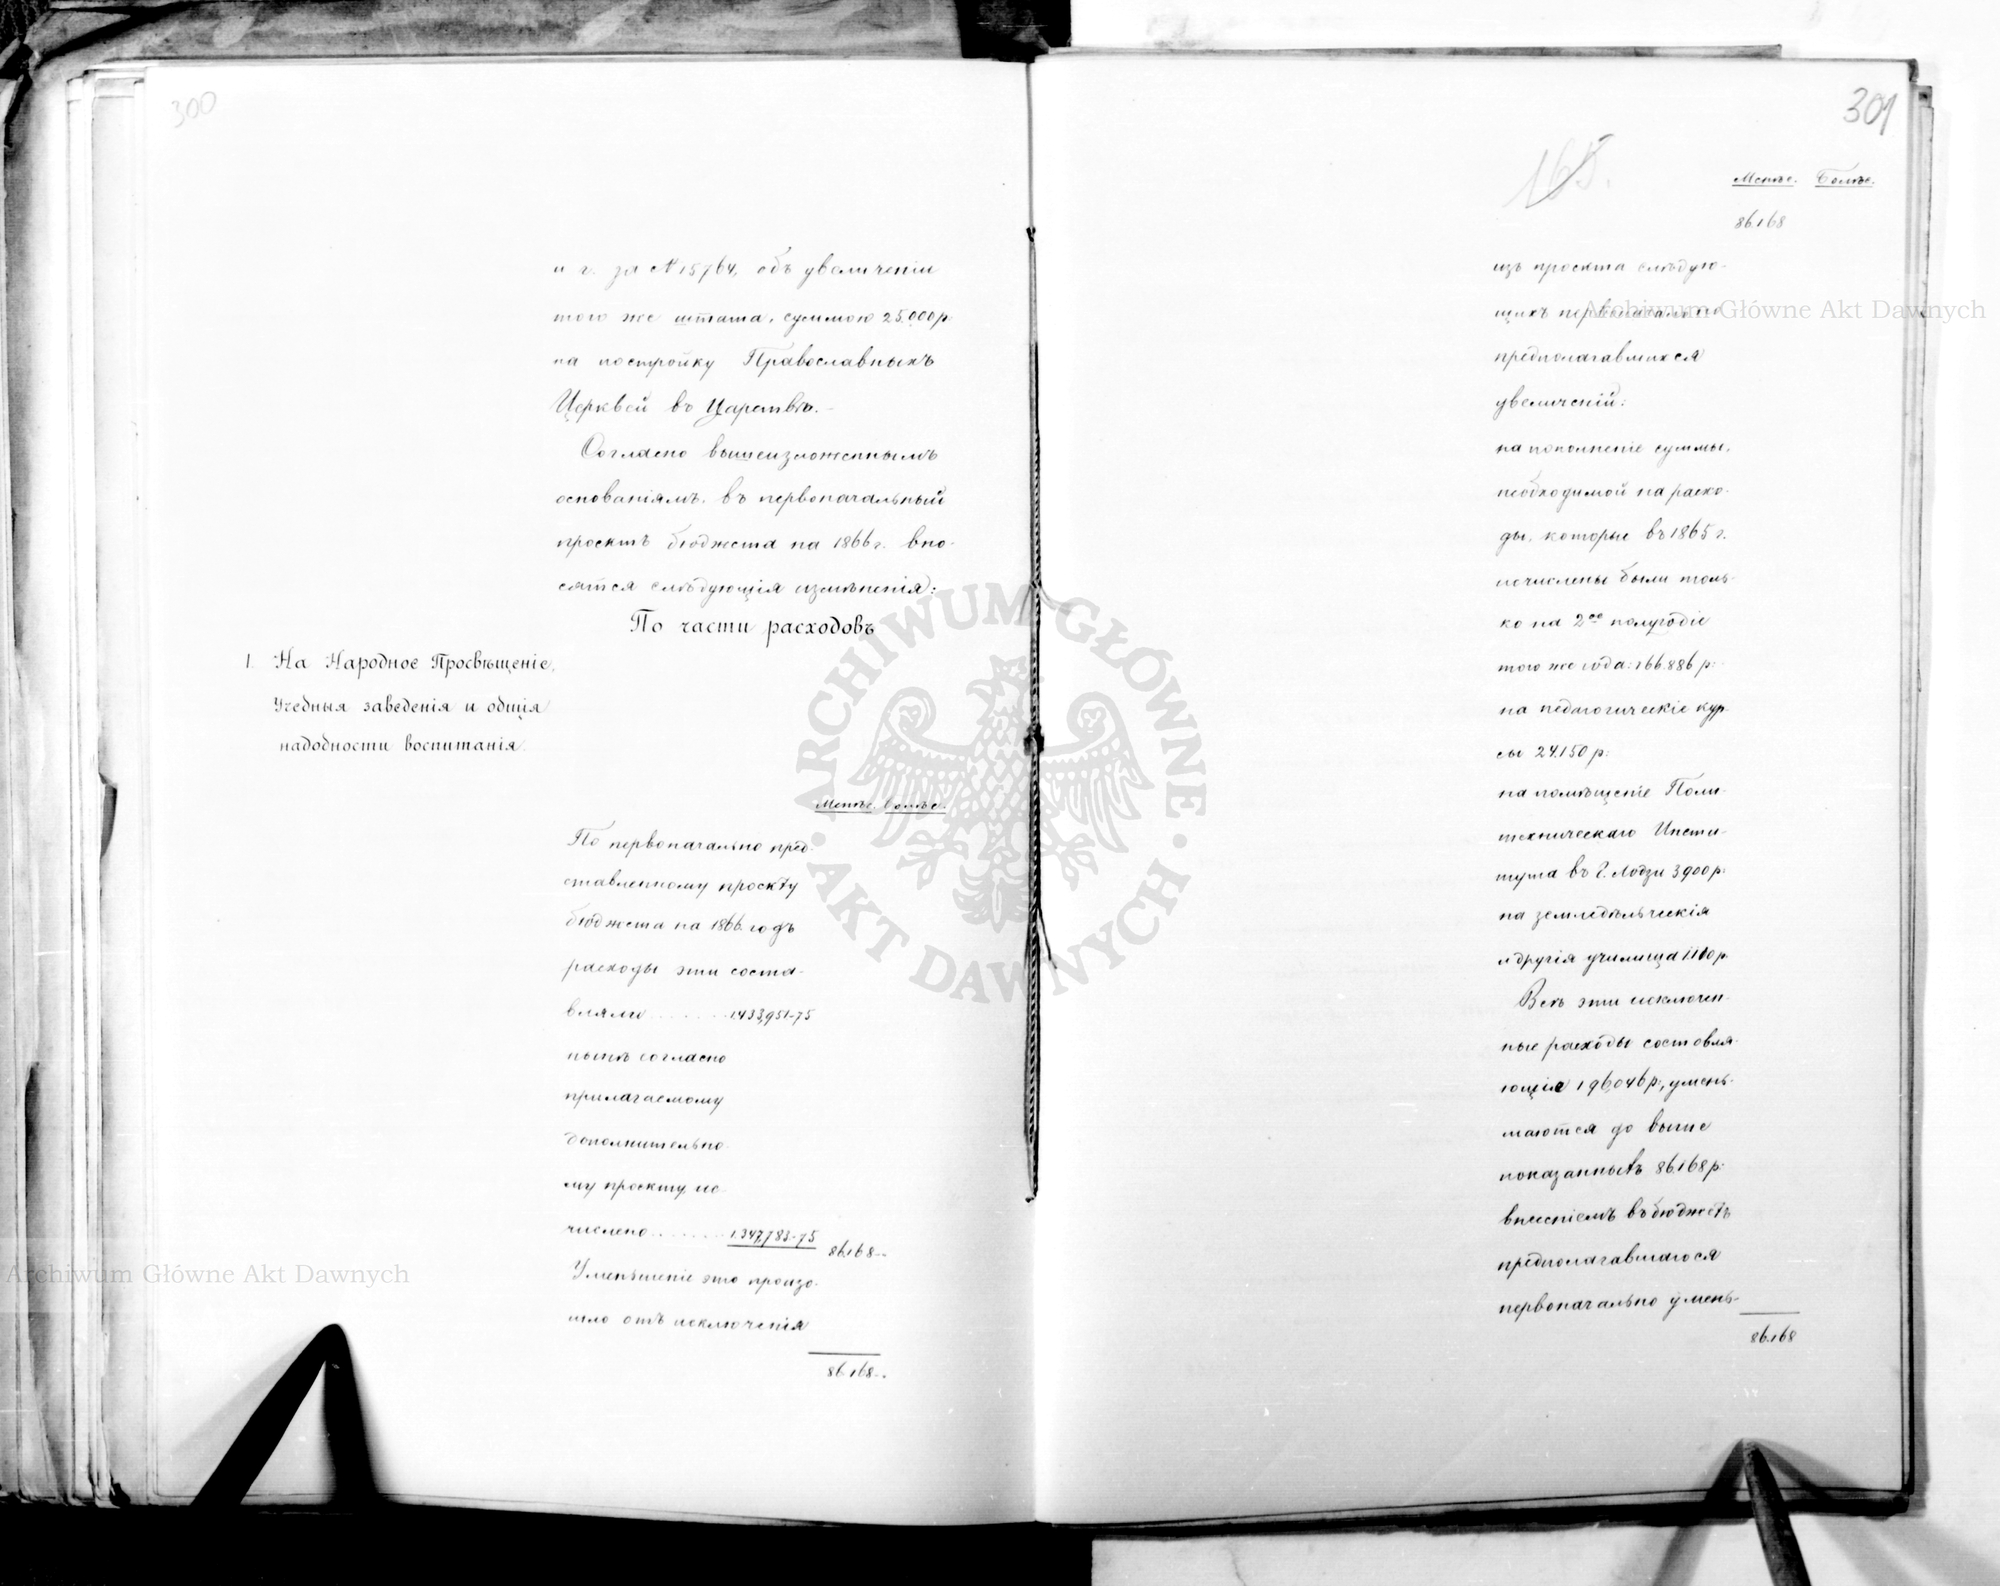 300
и г. за № 15764, объ увеличеніи
того же штата, суммою 25.000 р.
на постройку Православныхъ
Церквей въ Царствѣ.-
Согласно вышеизложеннымъ
основаніямъ, въ первоначальный
проектъ бюджета на 1866 г. вно-
сятся слѣдующія измѣненія:
По части расходовъ
1. На Народное Просвѣщеніе,
Учебныя заведенія и общія
надобности воспитанія.
Менѣе. Болѣе.
По первоначально пред-
ставленному проекту
бюджета на 1866 годъ
расходы эти соста-
вляли ........ 1.433,951-75
нынѣ согласно
прилагаемому
дополнительно-
му проекту ис-
числено ........ 1.347,783-75
86.168 -.
Уменьшеніе это произо-
шло отъ исключенія
86.168 -.
301
165.
Менѣе. Болѣе.
86.168
изъ проекта слѣдую-
щихъ первоначально
предполагавшихся
увеличеній:
на пополненіе суммы,
необходимой на расхо-
ды, которые въ 1865 г.
исчислены были толь-
ко на 2ое полугодіе
того же года: 166.886 р:
на педагогическіе кур-
сы 24.150 р:
на помѣщеніе Поли-
техническаго Инсти-
тута въ г. Лодзи 3.900 р:
на земледѣльческія
и другія училища 1.110 р.
Всѣ эти исключен-
ные расходы составля-
ющіе 196.046 р., умень-
шаются до выше
показанныхъ 86.168 р:
внесеніемъ въ бюджетъ
предполагавшагося
первоначально умень-
86.168
Archiwum Główne Akt Dawnych
Archiwum Główne Akt Dawnych
ARCHIWUM GŁÓWNE · AKT DAWNYCH ·